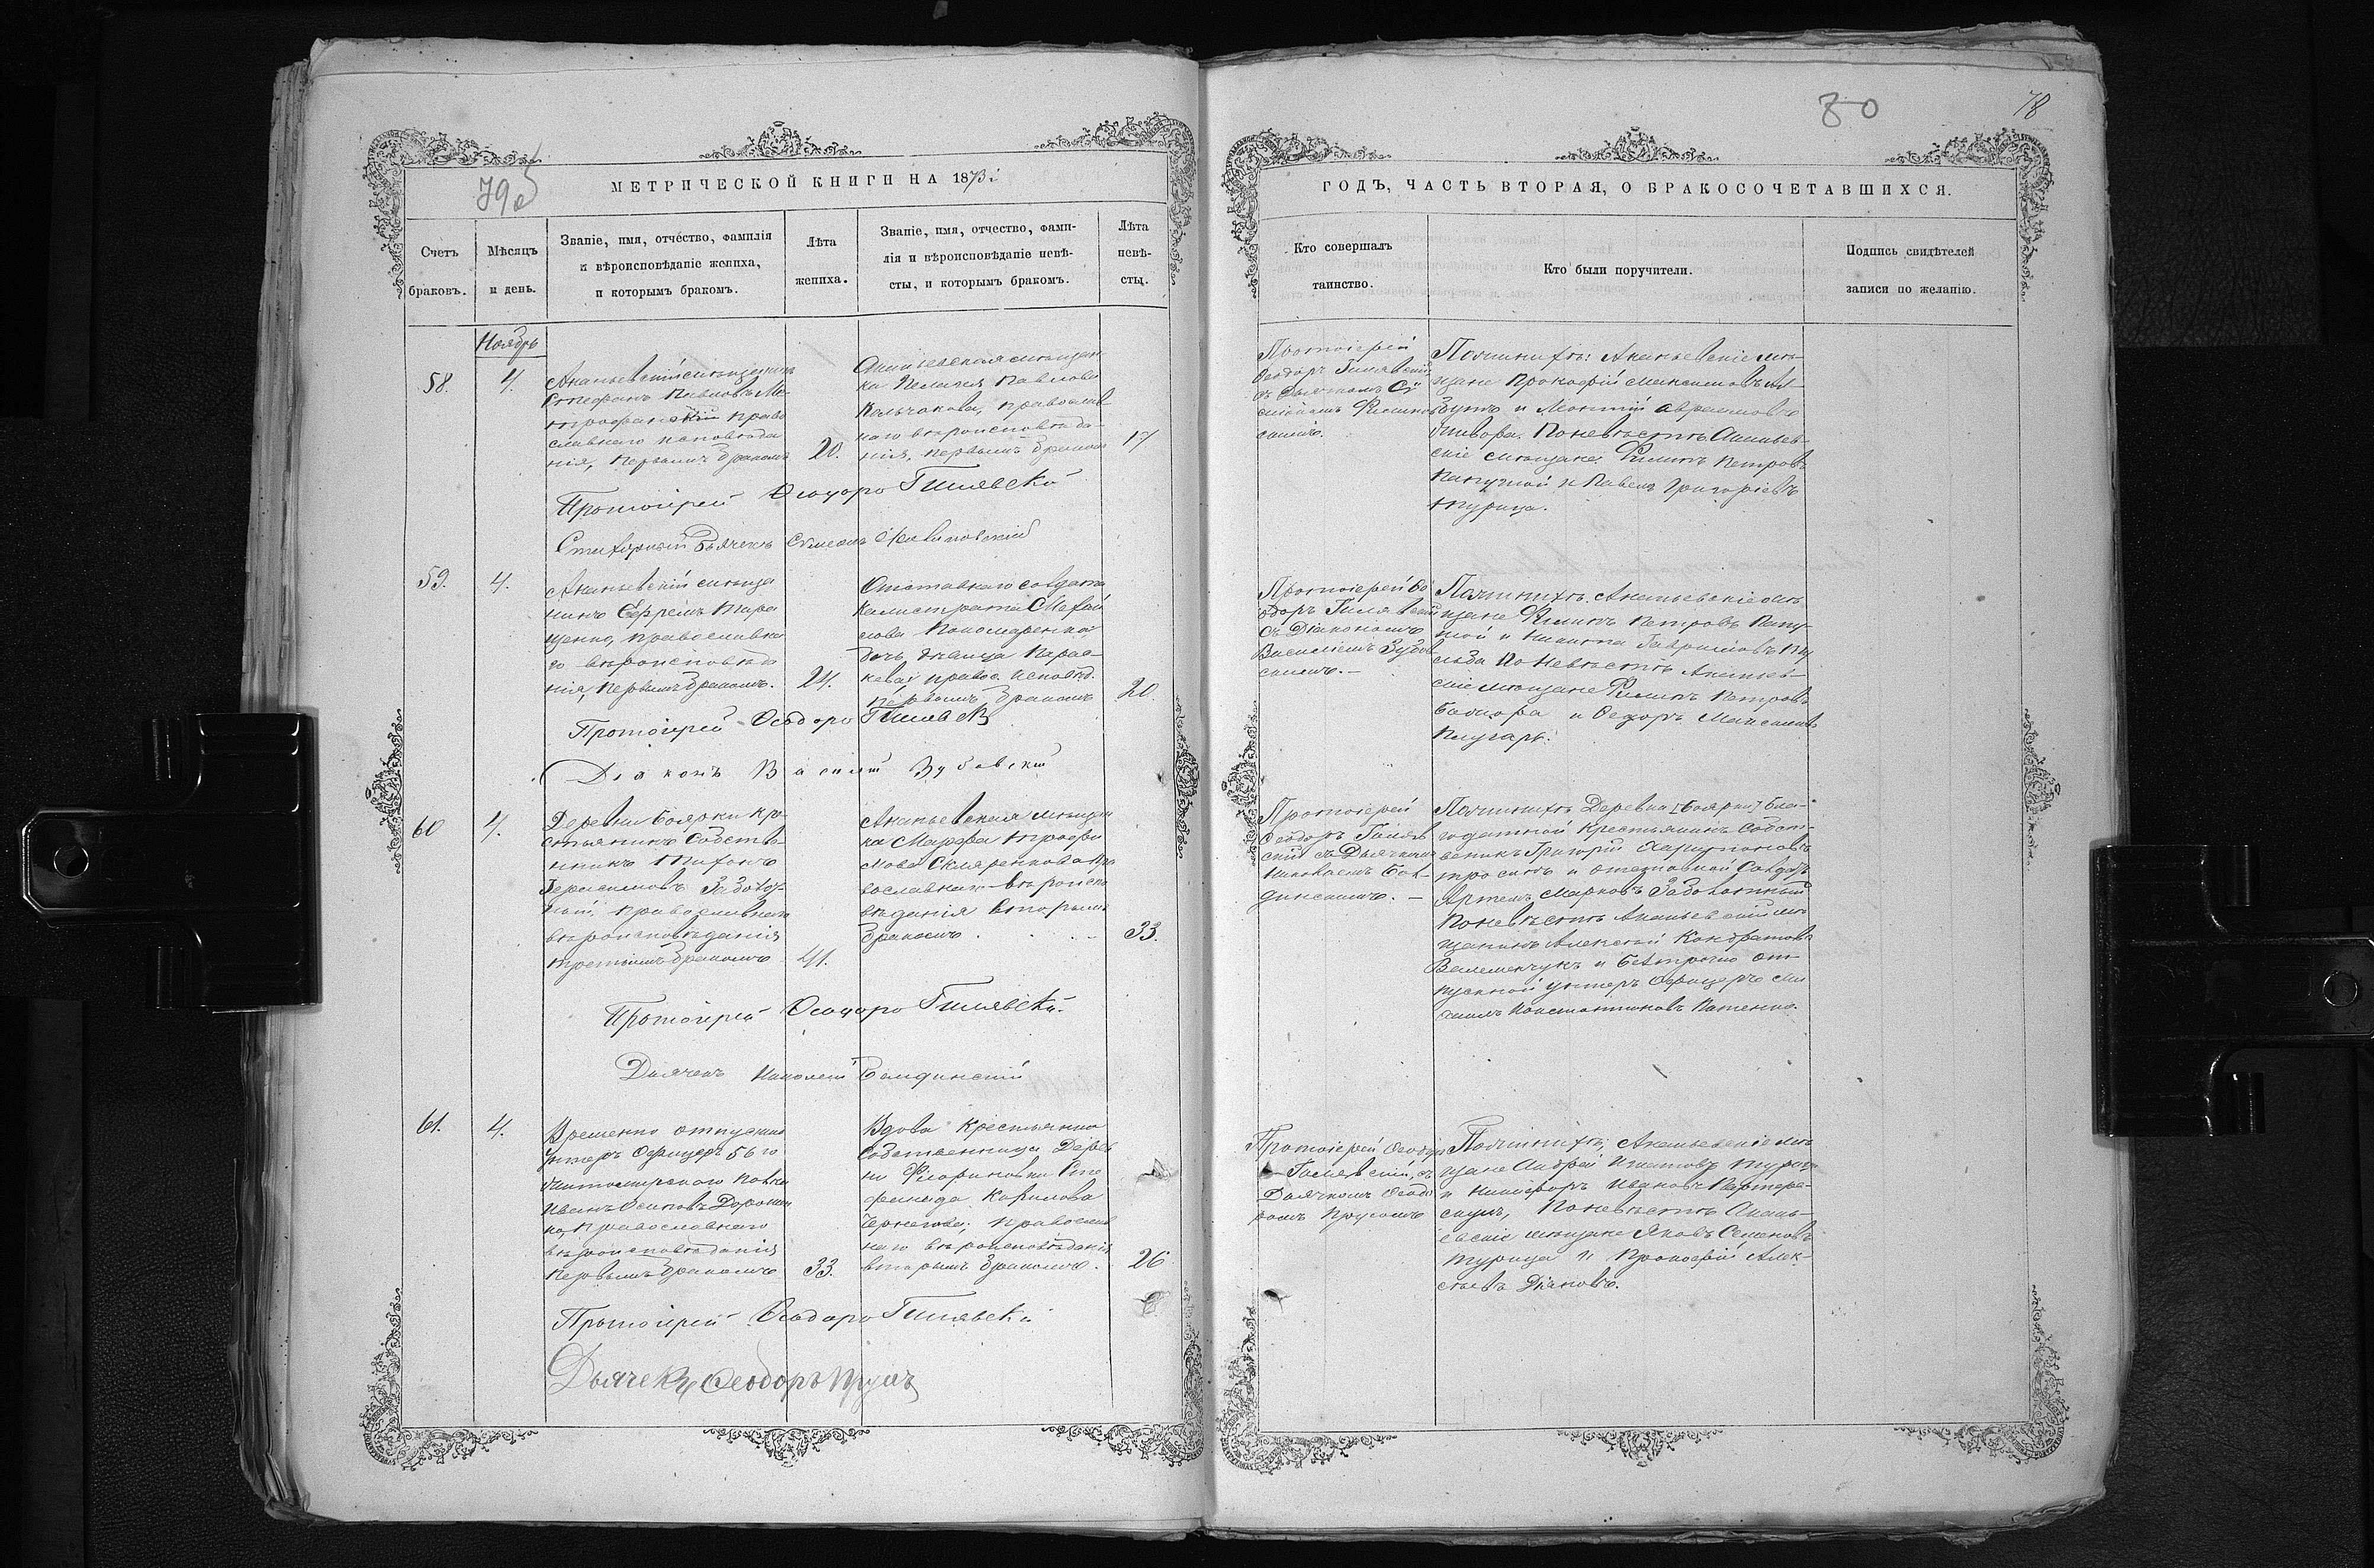 79об
МЕТРИЧЕСКОЙ КНИГИ НА 1873й
Счетъ браковъ.
Мѣсяцъ и день.
Званіе, имя, отчество, фамилія
и вѣроисповѣданіе жениха,
и которымъ бракомъ.
Лѣта
жениха.
Званіе, имя, отчество, фами-
лія и вѣроисповѣданіе невѣ-
сты, и которымъ бракомъ.
Лѣта
невѣ-
сты.
Ноябрь
58.
4.
Ананьевскій мѣщанинъ
Стефанъ Павловъ Ми
трофанскій право
славнаго исповѣда
нія, первымъ бракомъ
20.
Ананьевская мѣщан
ка Пелагія Павлова
Колчакова, православ
наго вѣроисповѣда-
нія, первымъ бракомъ
17
Протоіерей Ѳеодоръ Гилявскій
59.
4.
Ананьевскій мѣща
нинъ Ефремъ Тара
щенко, православна
го вѣроисповѣда
нія, первымъ бракомъ.
24.
Отставнаго солдата
Калистрата
Пономаренка
дочь дѣвица Парас-
кева, правос. исповѣд.
первымъ бракомъ
20
Протоіерей Ѳеодоръ Гилявскій
Діаконъ Василій Зубовскій
60
4.
Деревни Боярки кре
стьянинъ собстве-
нникъ Тихонъ
Герасимовъ Заболот
ный, православнаго
вѣроисповѣданія
третьимъ бракомъ
41.
Ананьевская мѣщан
ка Марфа Трофи
мова Скляренкова пра
вославнаго вѣроиспо
вѣданія вторымъ
бракомъ
33.
Протоіерей Ѳеодоръ Гилявскій.
Дьячекъ Николай
61.
4.
Временно отпускной
Унтеръ Офицеръ 56го
Житомирскаго полка
Иванъ Осиповъ Дорошен
ко, православнаго
вѣроисповѣданія
первымъ бракомъ
33.
Вдова крестьянка
собственница Дерев
ни Флориновки Сте
фанида Карпова
православ
наго вѣроисповѣданія
вторымъ бракомъ.
26
Протоіерей Ѳеодоръ Гилявскій
Дьячекъ Ѳеодоръ
80
78
ГОДЪ, ЧАСТЬ ВТОРАЯ, О БРАКОСОЧЕТАВШИХСЯ.
Кто совершалъ
таинство.
Кто были поручители.
Подпись свидѣтелей
записи по желанію.
Протоіерей
Ѳеодоръ Гилявскій
По женихѣ: Ананьевскіе мѣ-
щане Прокофій Максимовъ
и Леонтій Авраамовъ
По невѣстѣ Ананьев-
скіе мѣщане Филипъ Петровъ
и Павелъ Григорьевъ
Турица.
Протоіерей Ѳе
одоръ Гилявскій
съ Діакономъ
Василіемъ Зубов
скимъ.
По женихѣ. Ананьевскіе мѣ
щане Филипъ Петровъ
и Никита Гавриловъ
По невѣстѣ Ананьев-
скіе мѣщане Филипъ Петровъ
и Ѳедоръ Максимовъ
Протоіерей
Ѳеодоръ Гиляв
скій съ Дьячкомъ
Николаемъ
По женихѣ Деревни [Боярки] Бла-
годатной крестьянинъ собст-
венникъ Григорій Харитоновъ
и отставной Солдатъ
Артемъ Марковъ Заболотный
По невѣстѣ Ананьевскій мѣ
щанинъ Алексѣй Кондратовъ
и безсрочно от-
пускной унтеръ Офицеръ Ми
хаилъ Константиновъ
Протоіерей Ѳеодоръ
Гилявскій, съ
Дьячкомъ Ѳеодо
ромъ
По женихѣ; Ананьевскіе мѣ
щане Андрей Игнатовъ Турица
и Никифоръ Ивановъ
По невѣстѣ Анань-
евскіе мѣщане Яковъ Семеновъ
Турица и Прокофій Алек-
сѣевъ Діяковъ.